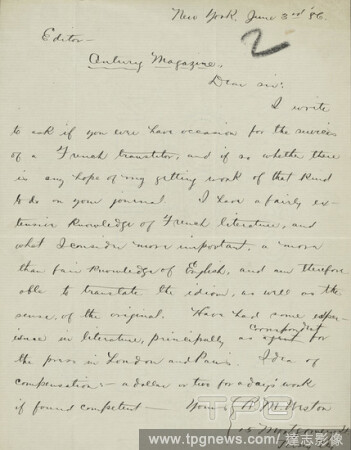 New York, June 3rd '86.
2
Editor—
Century Magazine,
Dear sir:
I write
to ask if you ever have occasion for the services
of a French translator, and if so whether there
is any hope of my getting work of that kind
to do on your journal. I have a fairly ex-
tensive knowledge of French literature, and
what I consider more important, a more
than fair knowledge of English, and am therefore
able to translate the idiom, as well as the
sense, of the original. Have had some exper-
ience in literature, principally as correspondent
for
the press in London and Paris. Idea of
compensation—a dollar or two for a day's work
if found competent— Yours
Weston
15 Montgomery
www.tpgnews.com / 達志影像